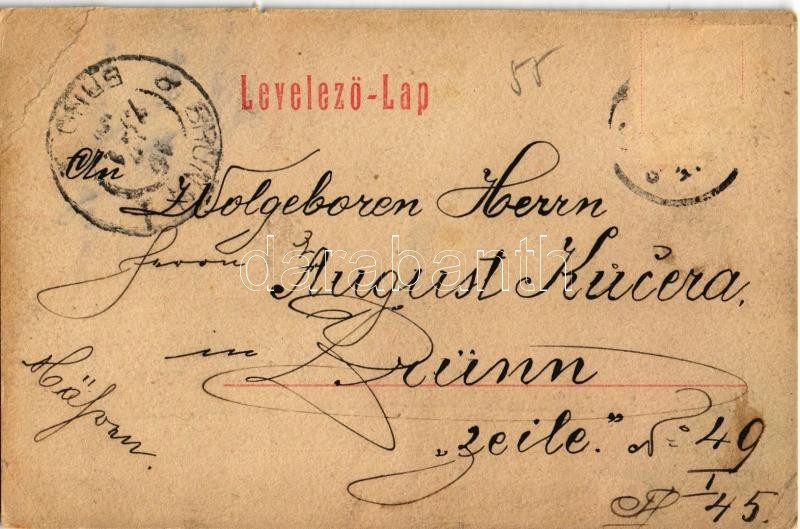 55
Levelező-Lap
BRÜNN
An
Wolgeboren Herrn
Herrn August Kučera,
in Brünn
"Zeile." No 49
I
45.
Mähren.
darabanth